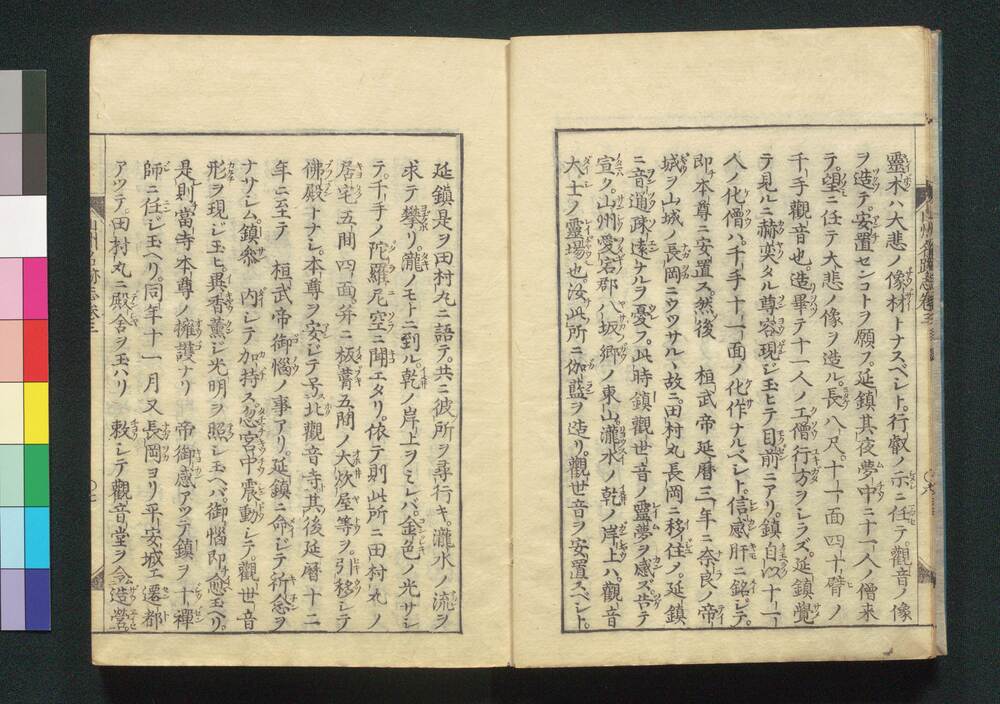 靈木ハ大悲ノ像材トナスベシト。行叡ノ示ニ任テ。觀音ノ像
ヲ造テ。安置センコトヲ願フ。延鎮其夜夢中ニ十一人ノ僧来
テ。望ニ任テ大悲ノ像ヲ造ル。長八尺。十一面四十臂ノ
千手觀音也。造畢テ十一人ノ工僧行方ヲシラズ。延鎮覺
テ見ルニ赫奕タル尊容現ジ玉ヒテ目前ニアリ。鎮自以十一
人ノ化僧ハ。千手十一面ノ化作ナルベシト。信感肝ニ銘シテ。
即本尊ニ安置ス。然後 桓武帝延暦三年ニ奈良ノ帝
城ヲ山城ノ長岡ニウツサル丶故ニ。田村丸長岡ニ移住ノ。延鎮
ニ音通疎遠ナルヲ憂フ。此時鎮觀世音ノ靈夢ヲ感ズ。告テ
宣ク。山州愛宕郡八坂郷ノ東山。瀧水ノ乾ノ岸上ハ。觀音
大士ノ靈場也。汝此所ニ伽藍ヲ造リ。觀世音ヲ安置スベシト。
山州名跡志巻三
延鎮是ヲ田村丸ニ語テ。共ニ彼所ヲ尋行キ。瀧水ノ流ヲ
求テ攀リ。瀧ノモトニ到ル。乾ノ岸上ヲミレバ。金色ノ光サシ
テ。千手ノ陀羅尼空ニ聞エタリ。依テ則此所ニ田村丸ノ
居宅五間四面。并ニ板葺五間ノ大炊屋等ヲ。引移シテ
佛殿トナシ。本尊ヲ安ジテ号北觀音寺其後延暦十二
年ニ至テ 桓武帝御惱ノ事アリ。延鎮ニ命ジテ祈念ヲ
ナサシム。鎮參 内シテ加持ス。忽宮中震動シテ。觀世音
形ヲ現ジ玉ヒ異香薫ジ光明ヲ照シ玉ヘバ。御惱即愈玉ヘリ。
是則當寺本尊ノ擁護ナリ 帝御感アツテ鎮ヲ十禪
師ニ任ジ玉ヘリ。同年十一月又長岡ヨリ平安城エ遷都
アツテ。田村丸ニ殿舎ヲ玉ハリ 敕シテ觀音堂ヲ令造営。